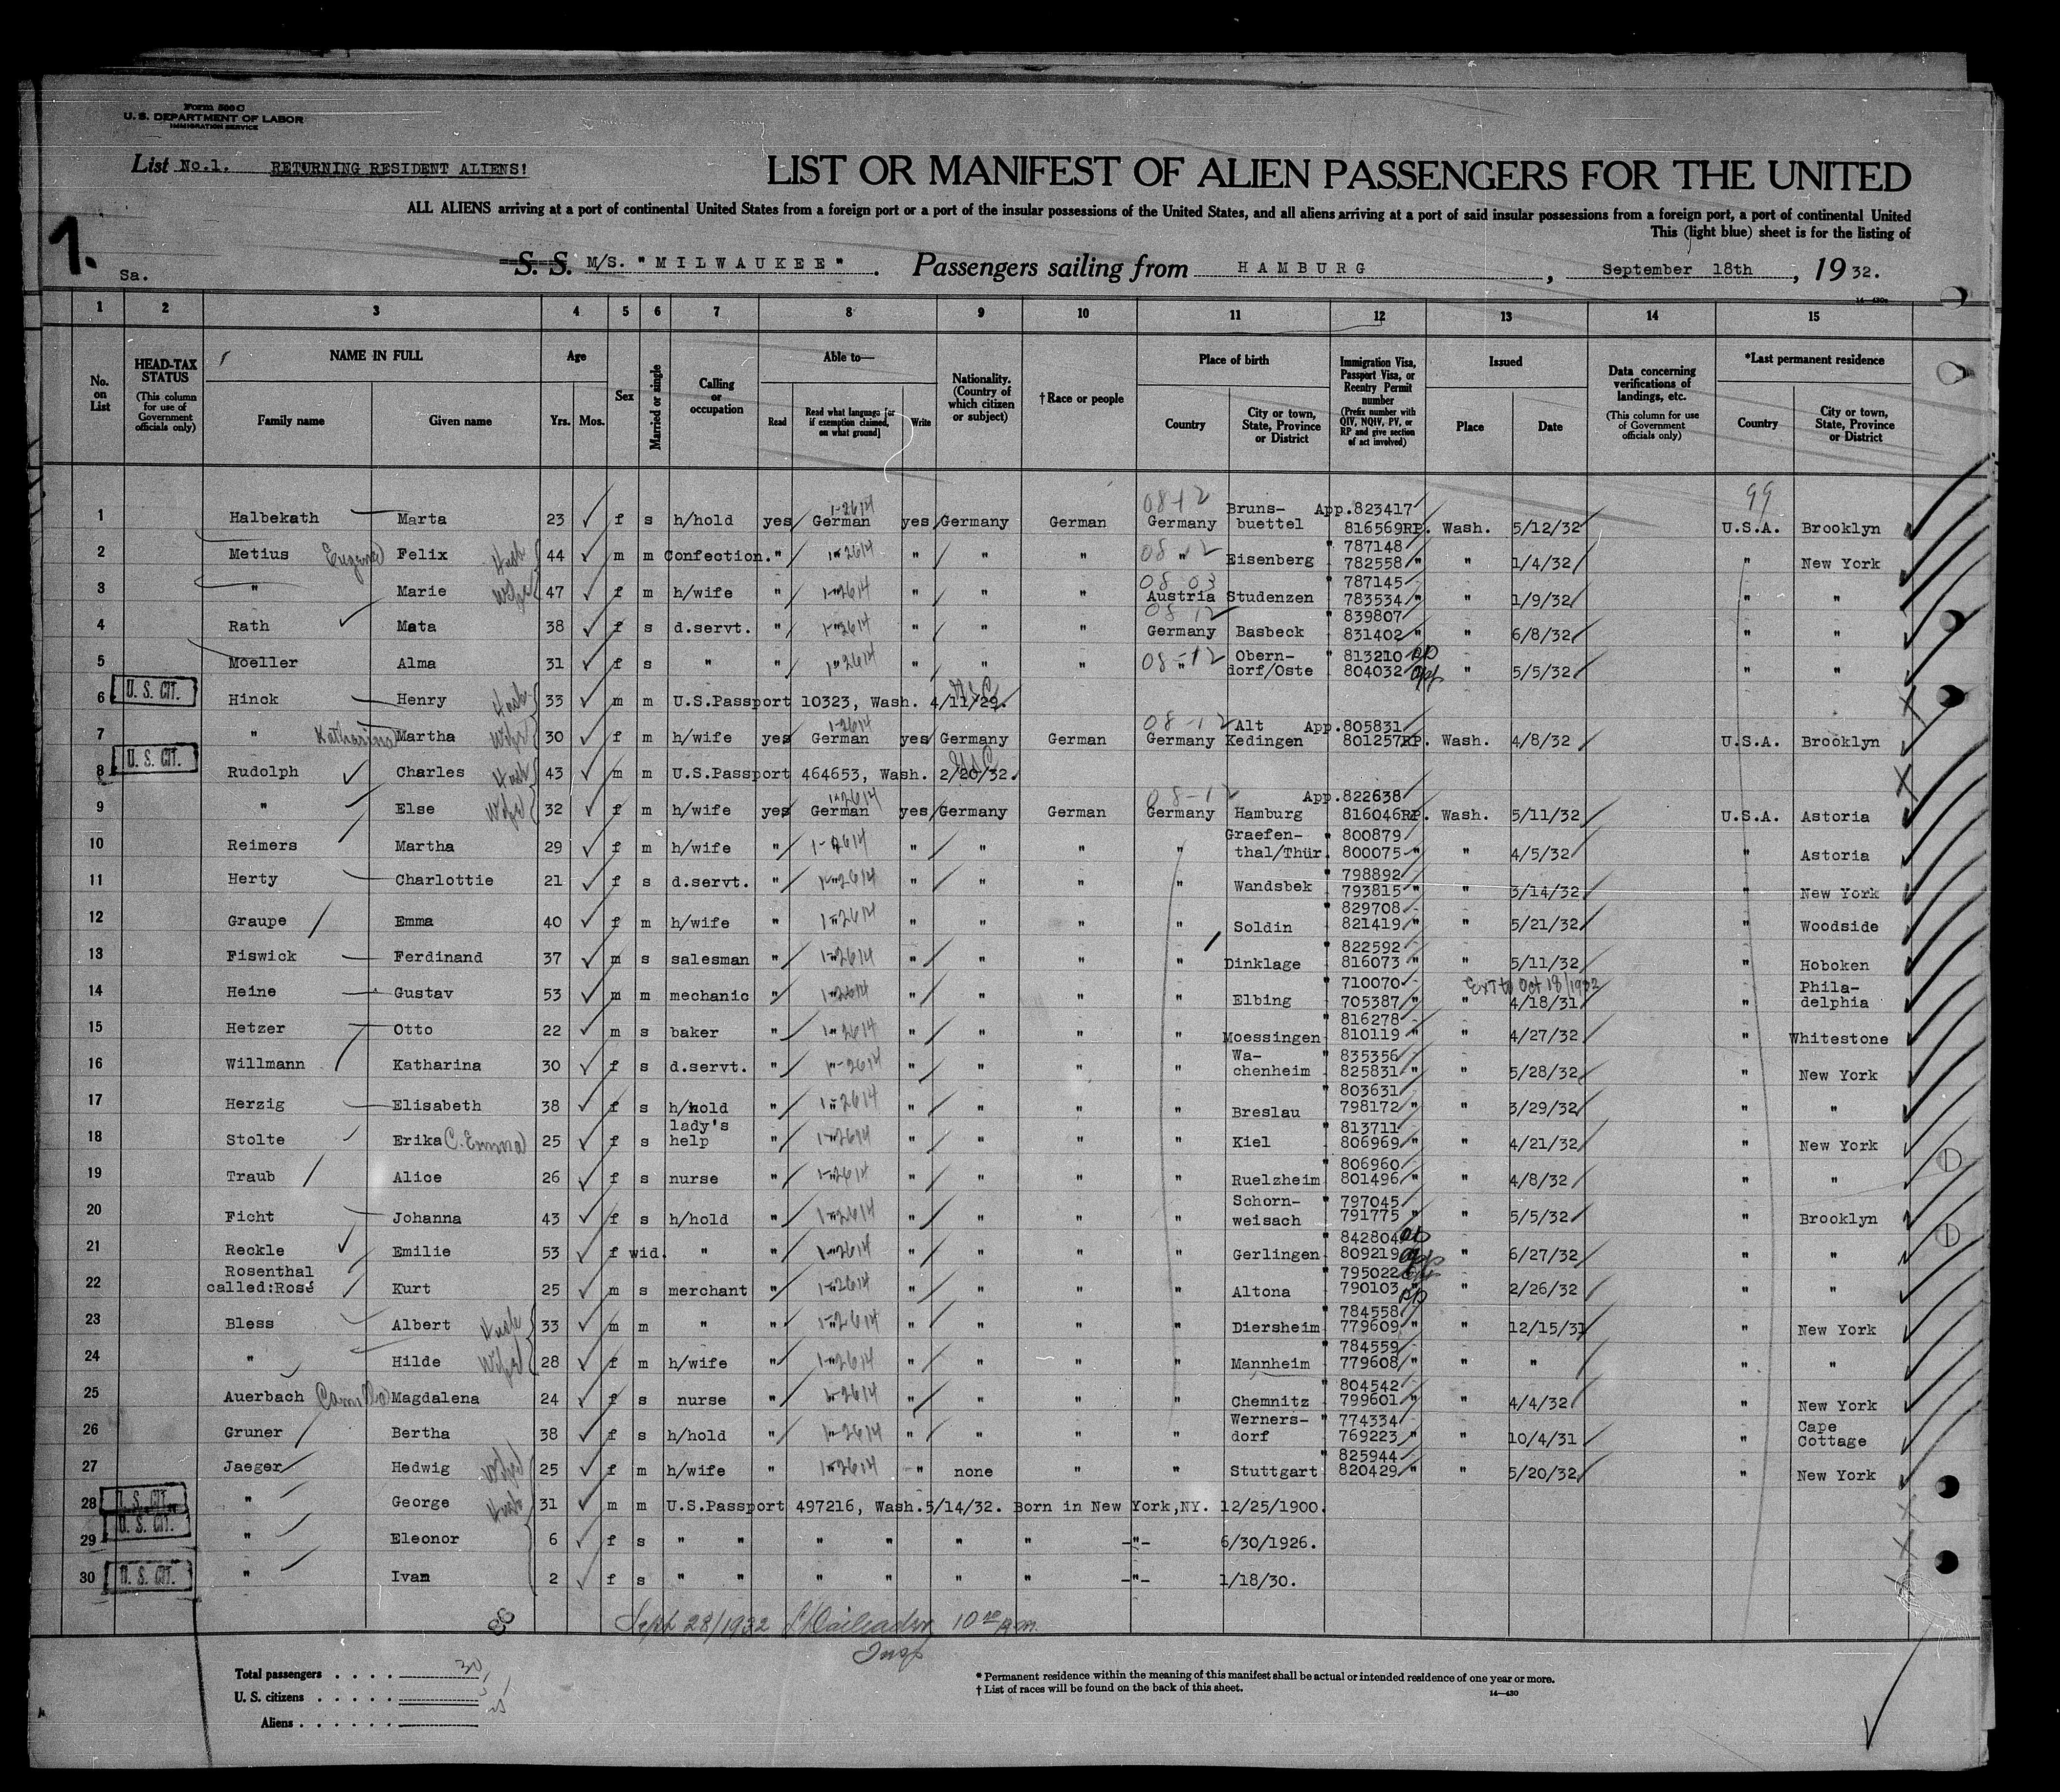 Form 500 C
U. S. DEPARTMENT OF LABOR
IMMIGRATION SERVICE
List No.1. RETURNING RESIDENT ALIENS!
LIST OR MANIFEST OF ALIEN PASSENGERS FOR THE UNITED
ALL ALIENS arriving at a port of continental United States from a foreign port or a port of the insular possessions of the United States, and all aliens arriving at a port of said insular possessions from a foreign port, a port of continental United
This (light blue) sheet is for the listing of
1.
Sa.
S. S. M/S. "MILWAUKEE". Passengers sailing from HAMBURG, September 18th, 1932.
1 2 3 4 5 6 7 8 9 10 11 12 13 14 15
No. on List
HEAD-TAX STATUS (This column for use of Government officials only)
NAME IN FULL
Family name Given name
Age
Yrs. Mos.
Sex
Married or single
Calling or occupation
Able to—
Read Read what language [or if exemption claimed, on what ground] Write
Nationality. (Country of which citizen or subject)
†Race or people
Place of birth
Country City or town, State, Province or District
Immigration Visa, Passport Visa, or Reentry Permit number (Prefix number with QIV, NQIV, PV, or RP and give section of act involved)
Issued
Place Date
Data concerning verifications of landings, etc. (This column for use of Government officials only)
*Last permanent residence
Country City or town, State, Province or District
1 Halbekath Marta 23 f s h/hold yes German yes Germany German Germany Brunsbuettel App.823417 816569RP. Wash. 5/12/32 U.S.A. Brooklyn
2 Metius Eugene Felix Husb 44 m m Confection. " " " " " " Eisenberg " 787148 782558 " " 1/4/32 " New York
3 " Marie Wife 47 f m h/wife " " " " " Austria Studenzen " 787145 783534 " " 1/9/32 " "
4 Rath Mata 38 f s d.servt. " " " " " Germany Basbeck " 839807 831402 " " 6/8/32 " "
5 Moeller Alma 31 f s " " " " " " " Oberndorf/Oste " 813210 804032 " 5/5/32 " "
6 U. S. CIT. Hinck Henry Husb 33 m m U.S.Passport 10323, Wash. 4/11/29.
7 " Katharina Martha Wife 30 f m h/wife yes German yes Germany German Germany Alt Kedingen App.805831 801257RP. Wash. 4/8/32 U.S.A. Brooklyn
8 U. S. CIT. Rudolph Charles Husb 43 m m U.S.Passport 464653, Wash. 2/20/32.
9 " Else Wife 32 f m h/wife yes German yes Germany German Germany Hamburg App.822638 816046RP. Wash. 5/11/32 U.S.A. Astoria
10 Reimers Martha 29 f m h/wife " " " " " " Graefenthal/Thür. " 800879 800075 " " 4/5/32 " Astoria
11 Herty Charlottie 21 f s d.servt. " " " " " " Wandsbek " 798892 793815 " " 3/14/32 " New York
12 Graupe Emma 40 f m h/wife " " " " " " Soldin " 829708 821419 " " 5/21/32 " Woodside
13 Fiswick Ferdinand 37 m s salesman " " " " " " Dinklage " 822592 816073 " " 5/11/32 " Hoboken
14 Heine Gustav 53 m m mechanic " " " " " " Elbing " 710070 705387 " " Ext to Oct 18/1932 4/18/31 " Philadelphia
15 Hetzer Otto 22 m s baker " " " " " " Moessingen " 816278 810119 " " 4/27/32 " Whitestone
16 Willmann Katharina 30 f s d.servt. " " " " " " Wachenheim " 835356 825831 " " 5/28/32 " New York
17 Herzig Elisabeth 38 f s h/hold " " " " " " Breslau " 803631 798172 " " 3/29/32 " "
18 Stolte Erika C. Emma 25 f s lady's help " " " " " " Kiel " 813711 806969 " " 4/21/32 " New York
19 Traub Alice 26 f s nurse " " " " " " Ruelzheim " 806960 801496 " " 4/8/32 " "
20 Ficht Johanna 43 f s h/hold " " " " " " Schornweisach " 797045 791775 " " 5/5/32 " Brooklyn
21 Reckle Emilie 53 f wid. " " " " " " " Gerlingen " 842804 809219 " 6/27/32 " "
22 Rosenthal called:Rosé Kurt 25 m s merchant " " " " " " Altona " 795022 790103 " " 2/26/32 " "
23 Bless Albert Husb 33 m m " " " " " " " Diersheim " 784558 779609 " " 12/15/31 " New York
24 " Hilde Wife 28 f m h/wife " " " " " " Mannheim " 784559 779608 " " " " "
25 Auerbach Camilla Magdalena 24 f s nurse " " " " " " Chemnitz " 804542 799601 " " 4/4/32 " New York
26 Gruner Bertha 38 f s h/hold " " " " " " Wernersdorf " 774334 769223 " " 10/4/31 " Cape Cottage
27 Jaeger Hedwig Wife 25 f m h/wife " " " none " " Stuttgart " 825944 820429 " " 5/20/32 " New York
28 U. S. CIT. " George Husb 31 m m U.S.Passport 497216, Wash.5/14/32. Born in New York,NY. 12/25/1900.
29 U. S. CIT. " Eleonor 6 f s " " " " " " -"- 6/30/1926.
30 U. S. CIT. " Ivan 2 f s " " " " " " -"- 1/18/30.
Sept 28/1932 10 00 Am.
Insp
Total passengers . . . . . 30
U. S. citizens . . . . . 5
Aliens . . . . . . 25
* Permanent residence within the meaning of this manifest shall be actual or intended residence of one year or more.
† List of races will be found on the back of this sheet.
14—430